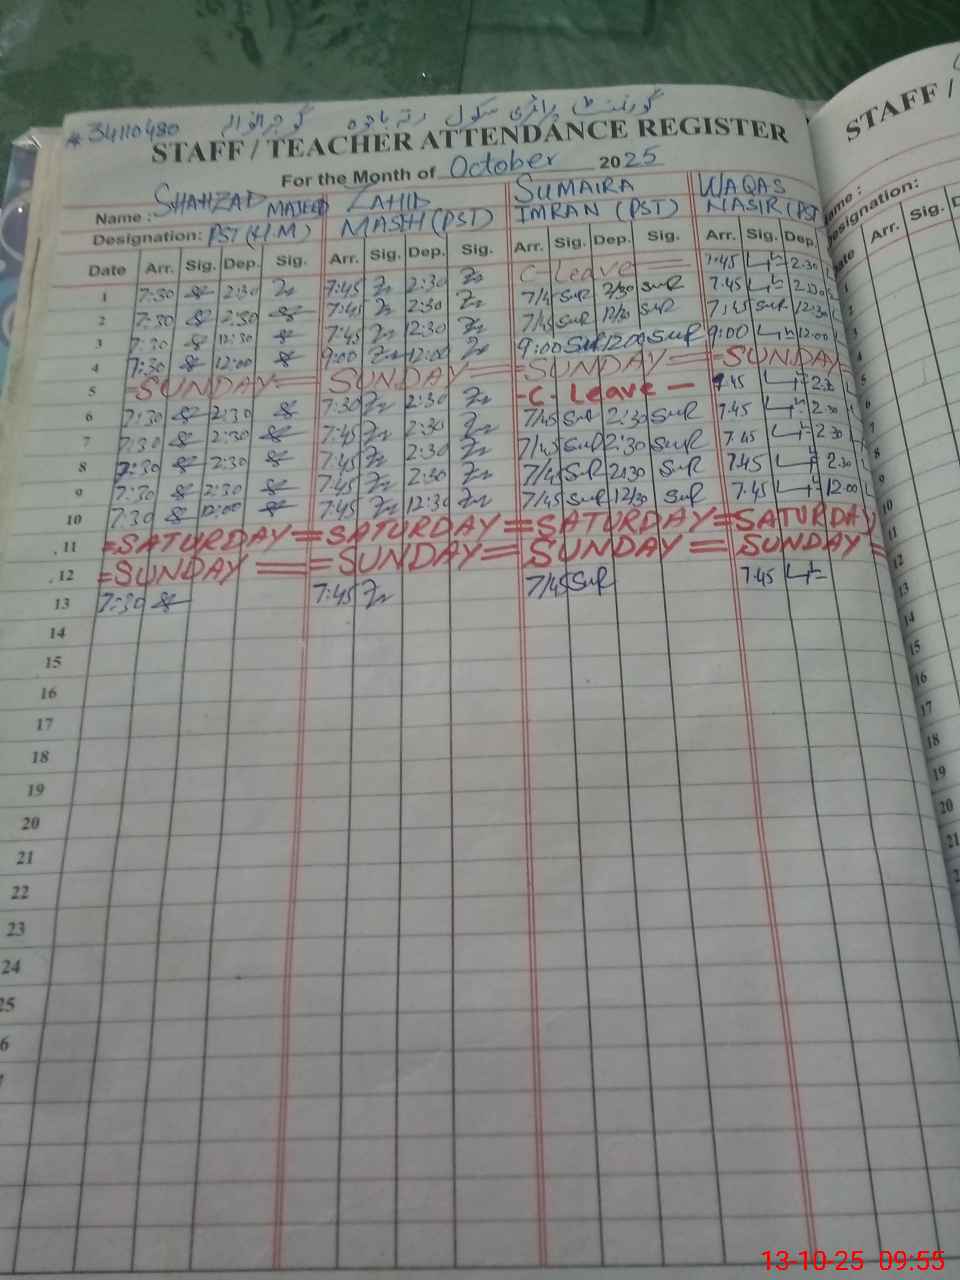 # 34110480 گورنمنٹ پرائمری سکول رتہ باجوہ گوجرانوالہ
STAFF / TEACHER ATTENDANCE REGISTER
For the Month of October 2025
Name : SHAHZAD MAJEED ZAHID SUMAIRA WAQAS
Designation: PST (H.M) MASIH (PST) IMRAN (PST) NASIR (PST
Date Arr. Sig. Dep. Sig. Arr. Sig. Dep. Sig. Arr. Sig. Dep. Sig. Arr. Sig. Dep.
1 7:30 2:30 7:45 2:30 C-Leave 7:45 2:30
2 7:30 2:30 7:45 2:30 7/45 Sur 2/30 Sur 7:45 2:30
3 7:30 12:30 7:45 12:30 7/45 Sur 12/30 Sur 7:45 Sur 12:30
4 7:30 12:00 9:00 12:00 9:00 Sur 12:00 Sur 9:00 12:00
5 SUNDAY SUNDAY SUNDAY SUNDAY
6 7:30 2:30 7:30 2:30 -C- Leave - 7:45 2:30
7 7:30 2:30 7:45 2:30 7/45 Sur 2:30 Sur 7:45 2:30
8 7:30 2:30 7:45 2:30 7/45 Sur 2:30 Sur 7:45 2:30
9 7:30 2:30 7:45 2:30 7/45 Sur 2:30 Sur 7:45 2:30
10 7:30 12:00 7:45 12:30 7/45 Sur 12/30 Sur 7:45 12:00
11 =SATURDAY= SATURDAY= SATURDAY= SATURDAY
12 =SUNDAY= SUNDAY= SUNDAY= SUNDAY=
13 7:30 7:45 7/45 Sur 7:45
14
15
16
17
18
19
20
21
22
23
24
25
6
STAFF /
Designation:
Arr. Sig.
8
9
10
11
12
13
14
15
16
17
18
19
20
21
13-10-25 09:55